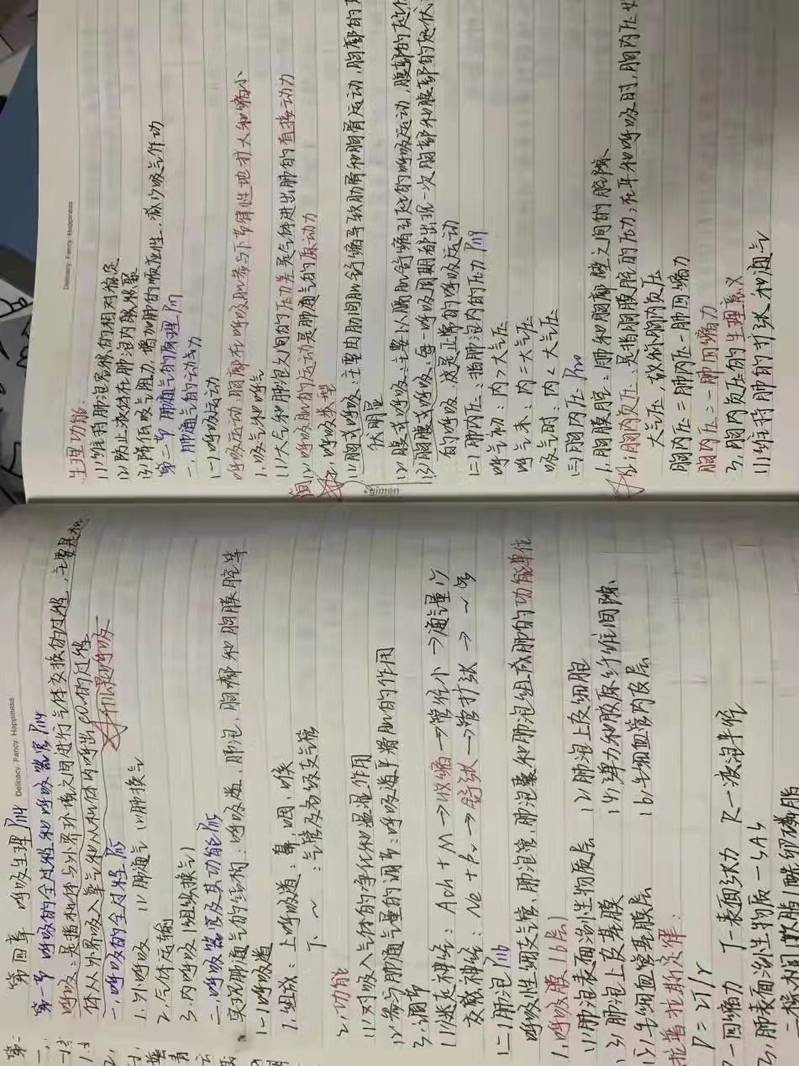 Delicacy. Fancy. Happiness
第四章 呼吸生理 P114
第一节 呼吸的全过程和呼吸器官 P114
呼吸:是指机体与外界环境之间进行气体交换的过程,主要是机
体从外界吸入氧气和从机体内呼出CO₂的过程
一.呼吸的全过程 P115
有机就是呼吸
1.外呼吸 (1)肺通气 (2)肺换气
2.气体运输
3.内呼吸(组织换气)
二.呼吸器官及其功能 P115
实现肺通气的结构:呼吸道、肺泡、胸廓和胸膜腔等
(一)呼吸道
1.组成:上呼吸道:鼻、咽、喉
下 ~ :气管及各级支气管
2.功能
(1)对吸入气体的净化和温湿作用
(2)参与肺通气量的调节:呼吸道平滑肌的作用
3.调节
(1)迷走神经:Ach+M→收缩→管径小→通气量少
交感神经:Ne+β₂→舒张→管扩张→~多
(二)肺泡 P116
呼吸性细支气管、肺泡管、肺泡囊和肺泡组成肺的功能单位
1.呼吸膜(6层)
(1)肺泡表面活性物质层 (2)肺泡上皮细胞
(3)肺泡上皮基膜 (4)弹力和胶原纤维间隙
(5)毛细血管基膜层 (6)毛细血管内皮层
拉普拉斯定律:
P=2T/r
P—回缩力 T—表面张力 R—液泡半径
2.肺表面活性物质—SAS
二棕榈酰卵磷脂
Delicacy. Fancy. Happiness
生理功能:
(1)维持肺泡容积的相对稳定
(2)防止液体在肺泡内积聚
(3)降低吸气阻力,增加肺的顺应性,减少吸气作功
第二节 肺通气的原理 P117
一.肺通气的动力
(一)呼吸运动
呼吸运动:胸廓在呼吸肌参与下节律性地扩大和缩小
1.吸气和呼气
(1)大气和肺泡之间的压力差是气体进出肺的直接动力
(2)呼吸肌的运动是肺通气的原动力
2.呼吸类型
(1)胸式呼吸:主要由肋间肌舒缩导致肋骨和胸骨运动,胸部的
伏明显
(2)腹式呼吸:主要以膈肌舒缩引起的呼吸运动,腹部的起伏
(3)胸腹式呼吸,每一呼吸周期都出现一次胸部和腹部的起伏
的呼吸,这是正常的呼吸运动
(二)肺内压:指肺泡内的压力 P119
呼气初:内>大气压
呼气末:内=大气压
吸气时:内<大气压
(三)胸内压 P120
1.胸膜腔:肺和胸廓壁之间的腔隙
2.胸内负压:是指胸膜腔的压力,在平和呼吸时,胸内压
大气压,故称胸内负压
胸内压=肺内压-肺回缩力
胸内压=-肺回缩力
3.胸内负压的生理意义
(1)维持肺的扩张和通气